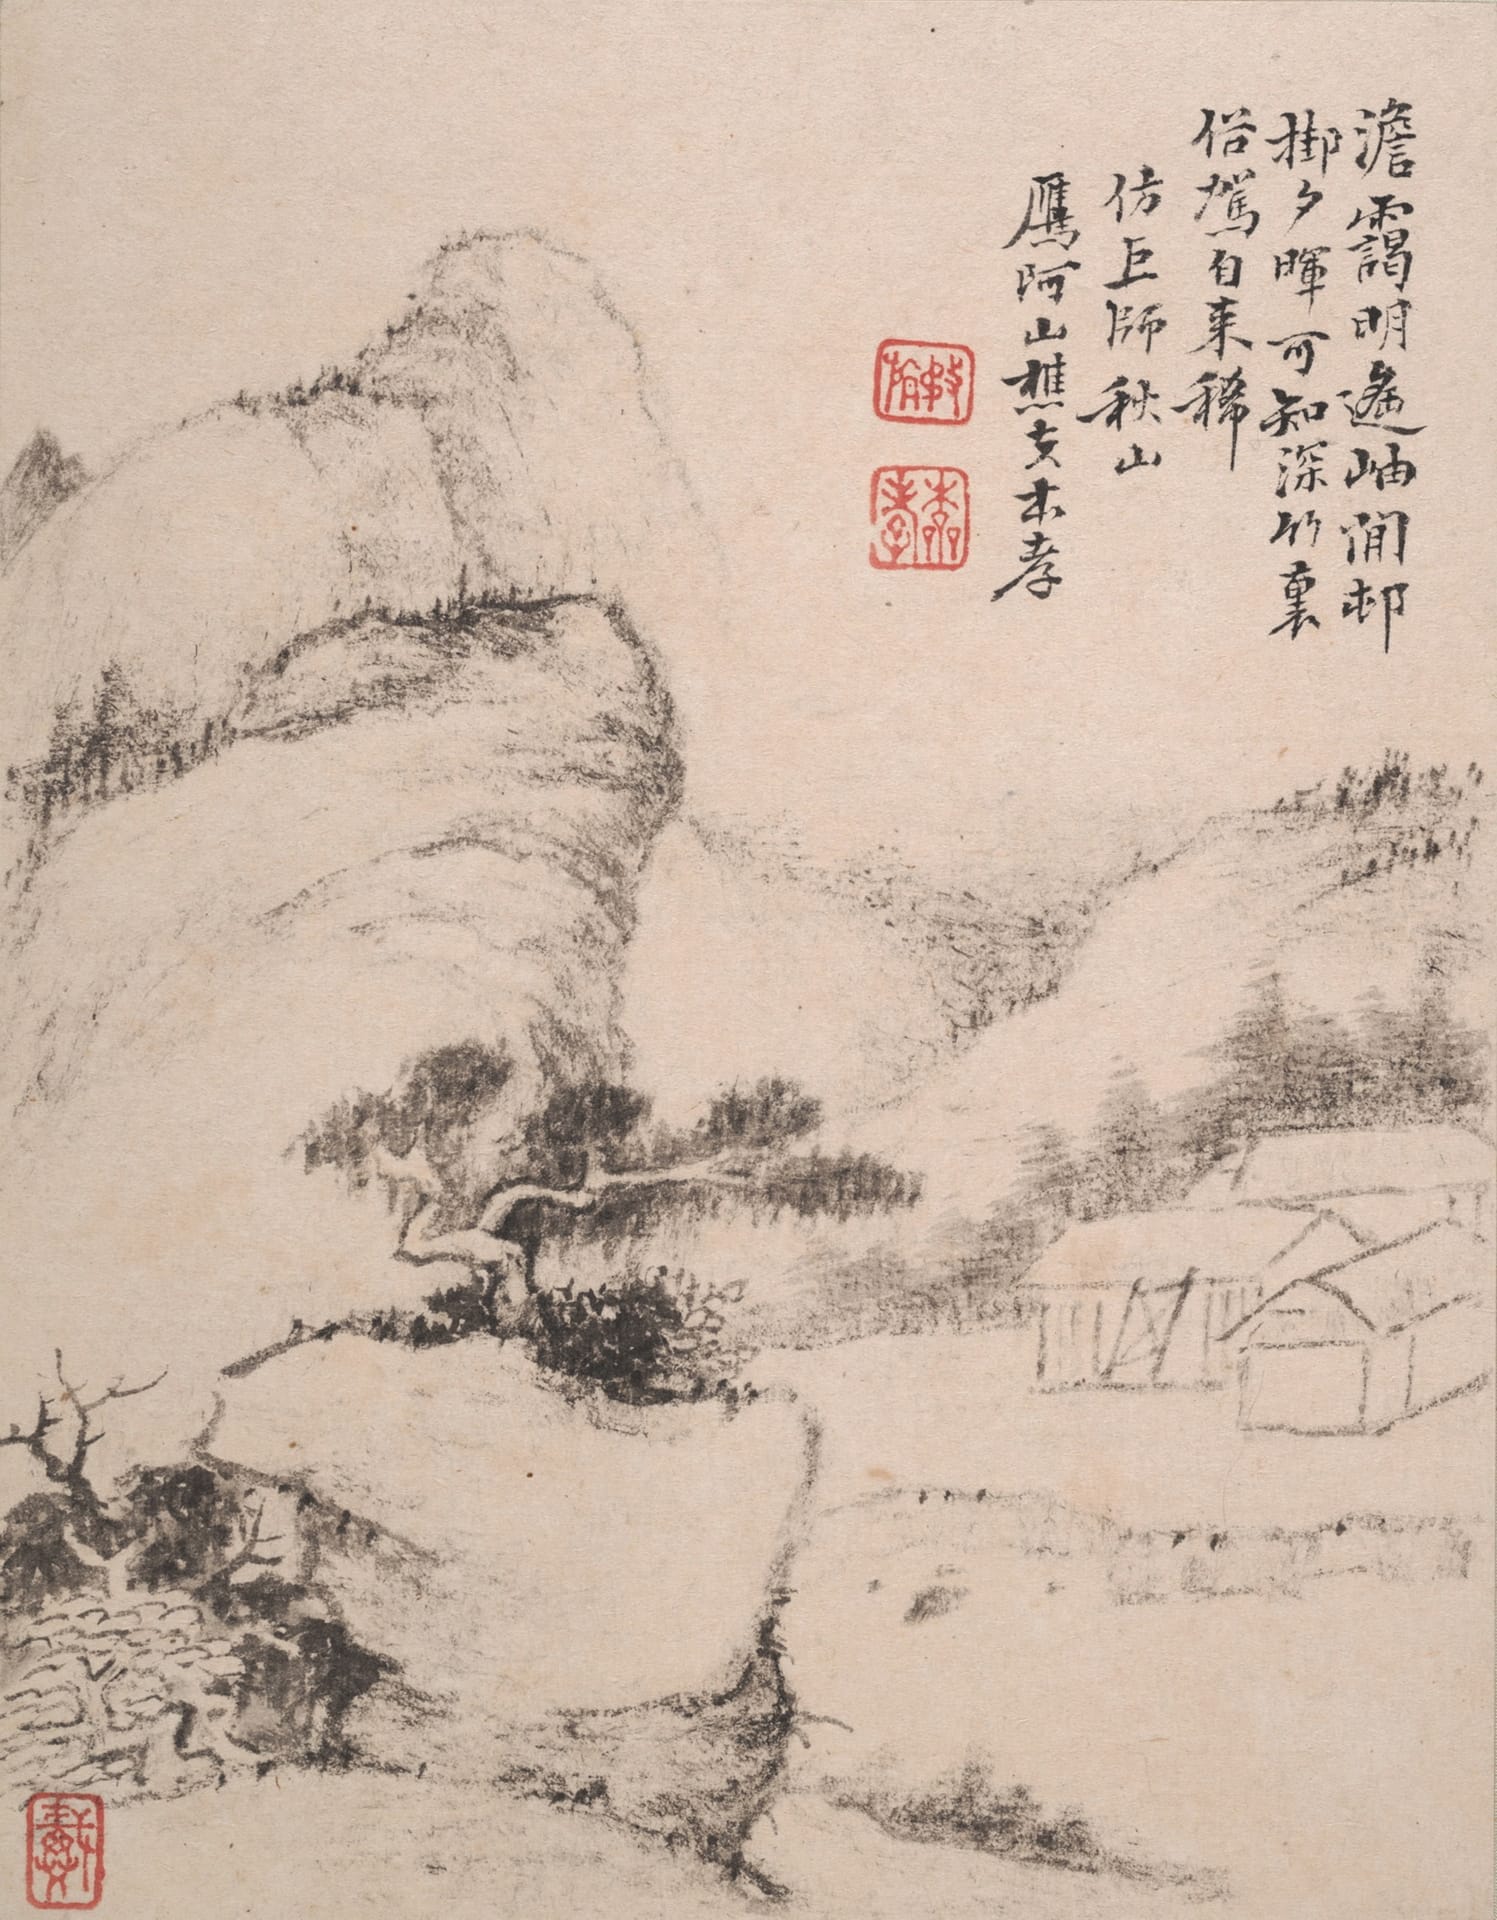 澹靄明遙岫閒邨
掛夕暉可知深竹裏
俗駕自来稀
仿巨師秋山
鷹阿山樵本孝
務旃
本孝